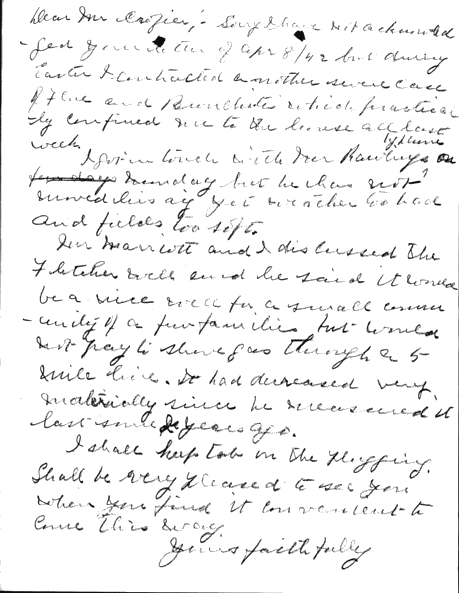 Dear Mr Crozier,- Sorry I have not acknowled
-ged your letter of Apr 8/42 but during
Easter I contracted another severe case
of Flue and Bronchitis which practical
-ly confined me to the house all last
week.
I got in touch with Mr Rawlings by phone on
few days Sunday but he has not
moved his rig yet weather too bad
and fields too soft.
Mr Marriott and I discussed the
Fletcher well and he said it would
be a nice well for a small comm
-unity of a few families but would
not pay to shove gas through a 5
mile line. It had decreased very
materially since he measured it
last some years ago.
I shall keep tab on the plugging.
Shall be very pleased to see you
when you find it convenient to
come this way
Yours faithfully